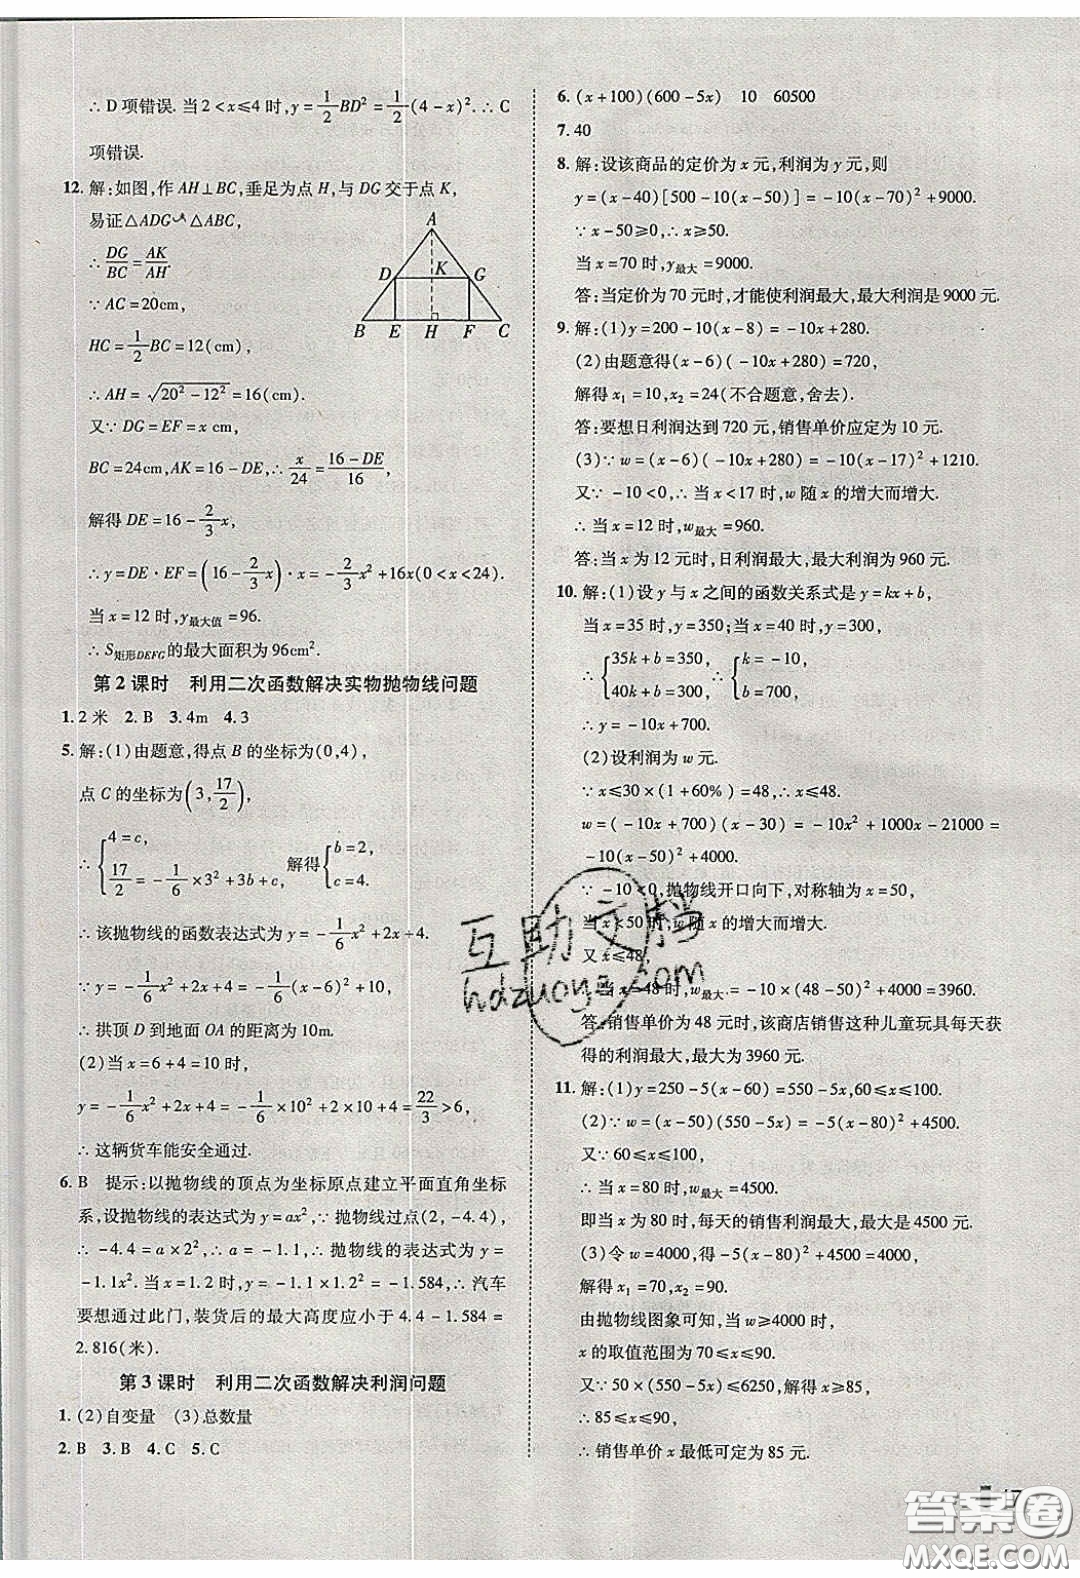 ∴ D 项错误. 当 2<x≤4 时, y=1/2 BD²=1/2 (4-x)². ∴ C
项错误.
12. 解:如图,作 AH⊥BC,垂足为点 H,与 DG 交于点 K,
易证△ADG∽△ABC,
∴ DG/BC=AK/AH.
∵ AC=20cm,
HC=1/2 BC=12(cm),
∴ AH=√(20²-12²)=16(cm).
又∵ DG=EF=x cm,
BC=24cm, AK=16-DE, ∴ x/24=(16-DE)/16,
解得 DE=16-2/3 x,
∴ y=DE·EF=(16-2/3 x)·x=-2/3 x²+16x(0<x<24).
当 x=12 时, y最大值=96.
∴ S矩形DEFG的最大面积为 96cm².
A
D K G
B E H F C
第 2 课时 利用二次函数解决实物抛物线问题
1. 2 米 2. B 3. 4m 4. 3
5. 解:(1)由题意,得点 B 的坐标为(0,4),
点 C 的坐标为(3, 17/2),
∴ {4=c, 17/2=-1/6×3²+3b+c, 解得{b=2, c=4.
∴ 该抛物线的函数表达式为 y=-1/6 x²+2x+4.
∵ y=-1/6 x²+2x+4=-1/6 (x-6)²+10,
∴ 拱顶 D 到地面 OA 的距离为 10m.
(2)当 x=6+4=10 时,
y=-1/6 x²+2x+4=-1/6×10²+2×10+4=22/3>6,
∴ 这辆货车能安全通过.
6. B 提示:以抛物线的顶点为坐标原点建立平面直角坐标
系,设抛物线的表达式为 y=ax², ∵ 抛物线过点(2,-4.4),
∴ -4.4=a×2², ∴ a=-1.1, ∴ 抛物线的表达式为 y=
-1.1x². 当 x=1.2 时, y=-1.1×1.2²=-1.584, ∴ 汽车
要想通过此门,装货后的最大高度应小于 4.4-1.584=
2.816(米).
第 3 课时 利用二次函数解决利润问题
1. (2)自变量 (3)总数量
2. B 3. B 4. C 5. C
6. (x+100)(600-5x) 10 60500
7. 40
8. 解:设该商品的定价为 x 元,利润为 y 元,则
y=(x-40)[500-10(x-50)]=-10(x-70)²+9000.
∵ x-50≥0, ∴ x≥50.
当 x=70 时, y最大=9000.
答:当定价为 70 元时,才能使利润最大,最大利润是 9000 元.
9. 解:(1)y=200-10(x-8)=-10x+280.
(2)由题意得(x-6)(-10x+280)=720,
解得 x₁=10, x₂=24(不合题意,舍去).
答:要想日利润达到 720 元,销售单价应定为 10 元.
(3)∵ w=(x-6)(-10x+280)=-10(x-17)²+1210.
又∵ -10<0, ∴ 当 x<17 时, w 随 x 的增大而增大.
∴ 当 x=12 时, w最大=960.
答:当 x 为 12 元时,日利润最大,最大利润为 960 元.
10. 解:(1)设 y 与 x 之间的函数关系式是 y=kx+b,
当 x=35 时, y=350;当 x=40 时, y=300,
∴ {35k+b=350, 40k+b=300, ∴ {k=-10, b=700,
∴ y=-10x+700.
(2)设利润为 w 元.
∵ x≤30×(1+60%)=48, ∴ x≤48.
w=(-10x+700)(x-30)=-10x²+1000x-21000=
-10(x-50)²+4000.
∵ -10<0,抛物线开口向下,对称轴为 x=50,
当 x<50 时, w 随 x 的增大而增大.
∵ x≤48,
∴ 当 x=48 时, w最大=-10×(48-50)²+4000=3960.
答:销售单价为 48 元时,该商店销售这种儿童玩具每天获
得的利润最大,最大为 3960 元.
11. 解:(1)y=250-5(x-60)=550-5x, 60≤x≤100.
(2)∵ w=(x-50)(550-5x)=-5(x-80)²+4500.
又∵ 60≤x≤100,
∴ 当 x=80 时, w最大=4500.
即当 x 为 80 时,每天的销售利润最大,最大是 4500 元.
(3)令 w=4000,得-5(x-80)²+4500=4000,
解得 x₁=70, x₂=90.
由抛物线图象可知,当 w≥4000 时,
x 的取值范围为 70≤x≤90.
又∵ x≥85,
∴ 85≤x≤90,
∴ 销售单价 x 最低可定为 85 元.
互助文档
hdzuoye.com
答案圈
MXQE.COM